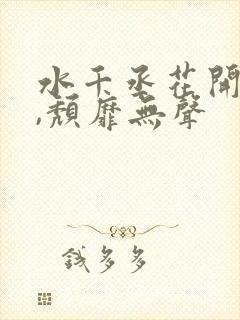 水千丞花開
,頹靡無聲
錢多多